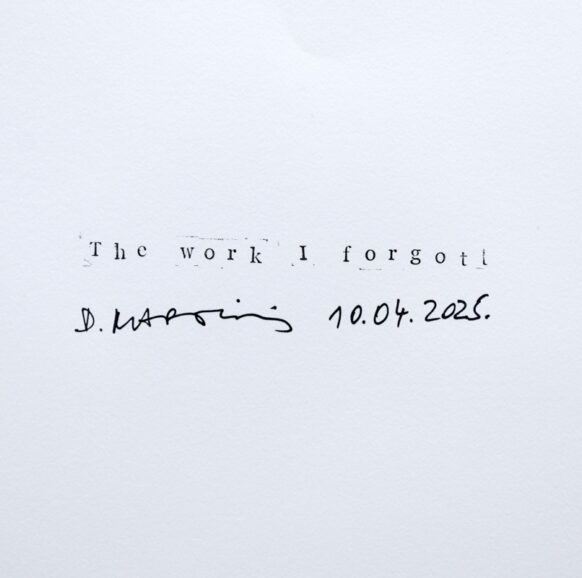 The work I forgott
D. MARTinis 10.04.2025.